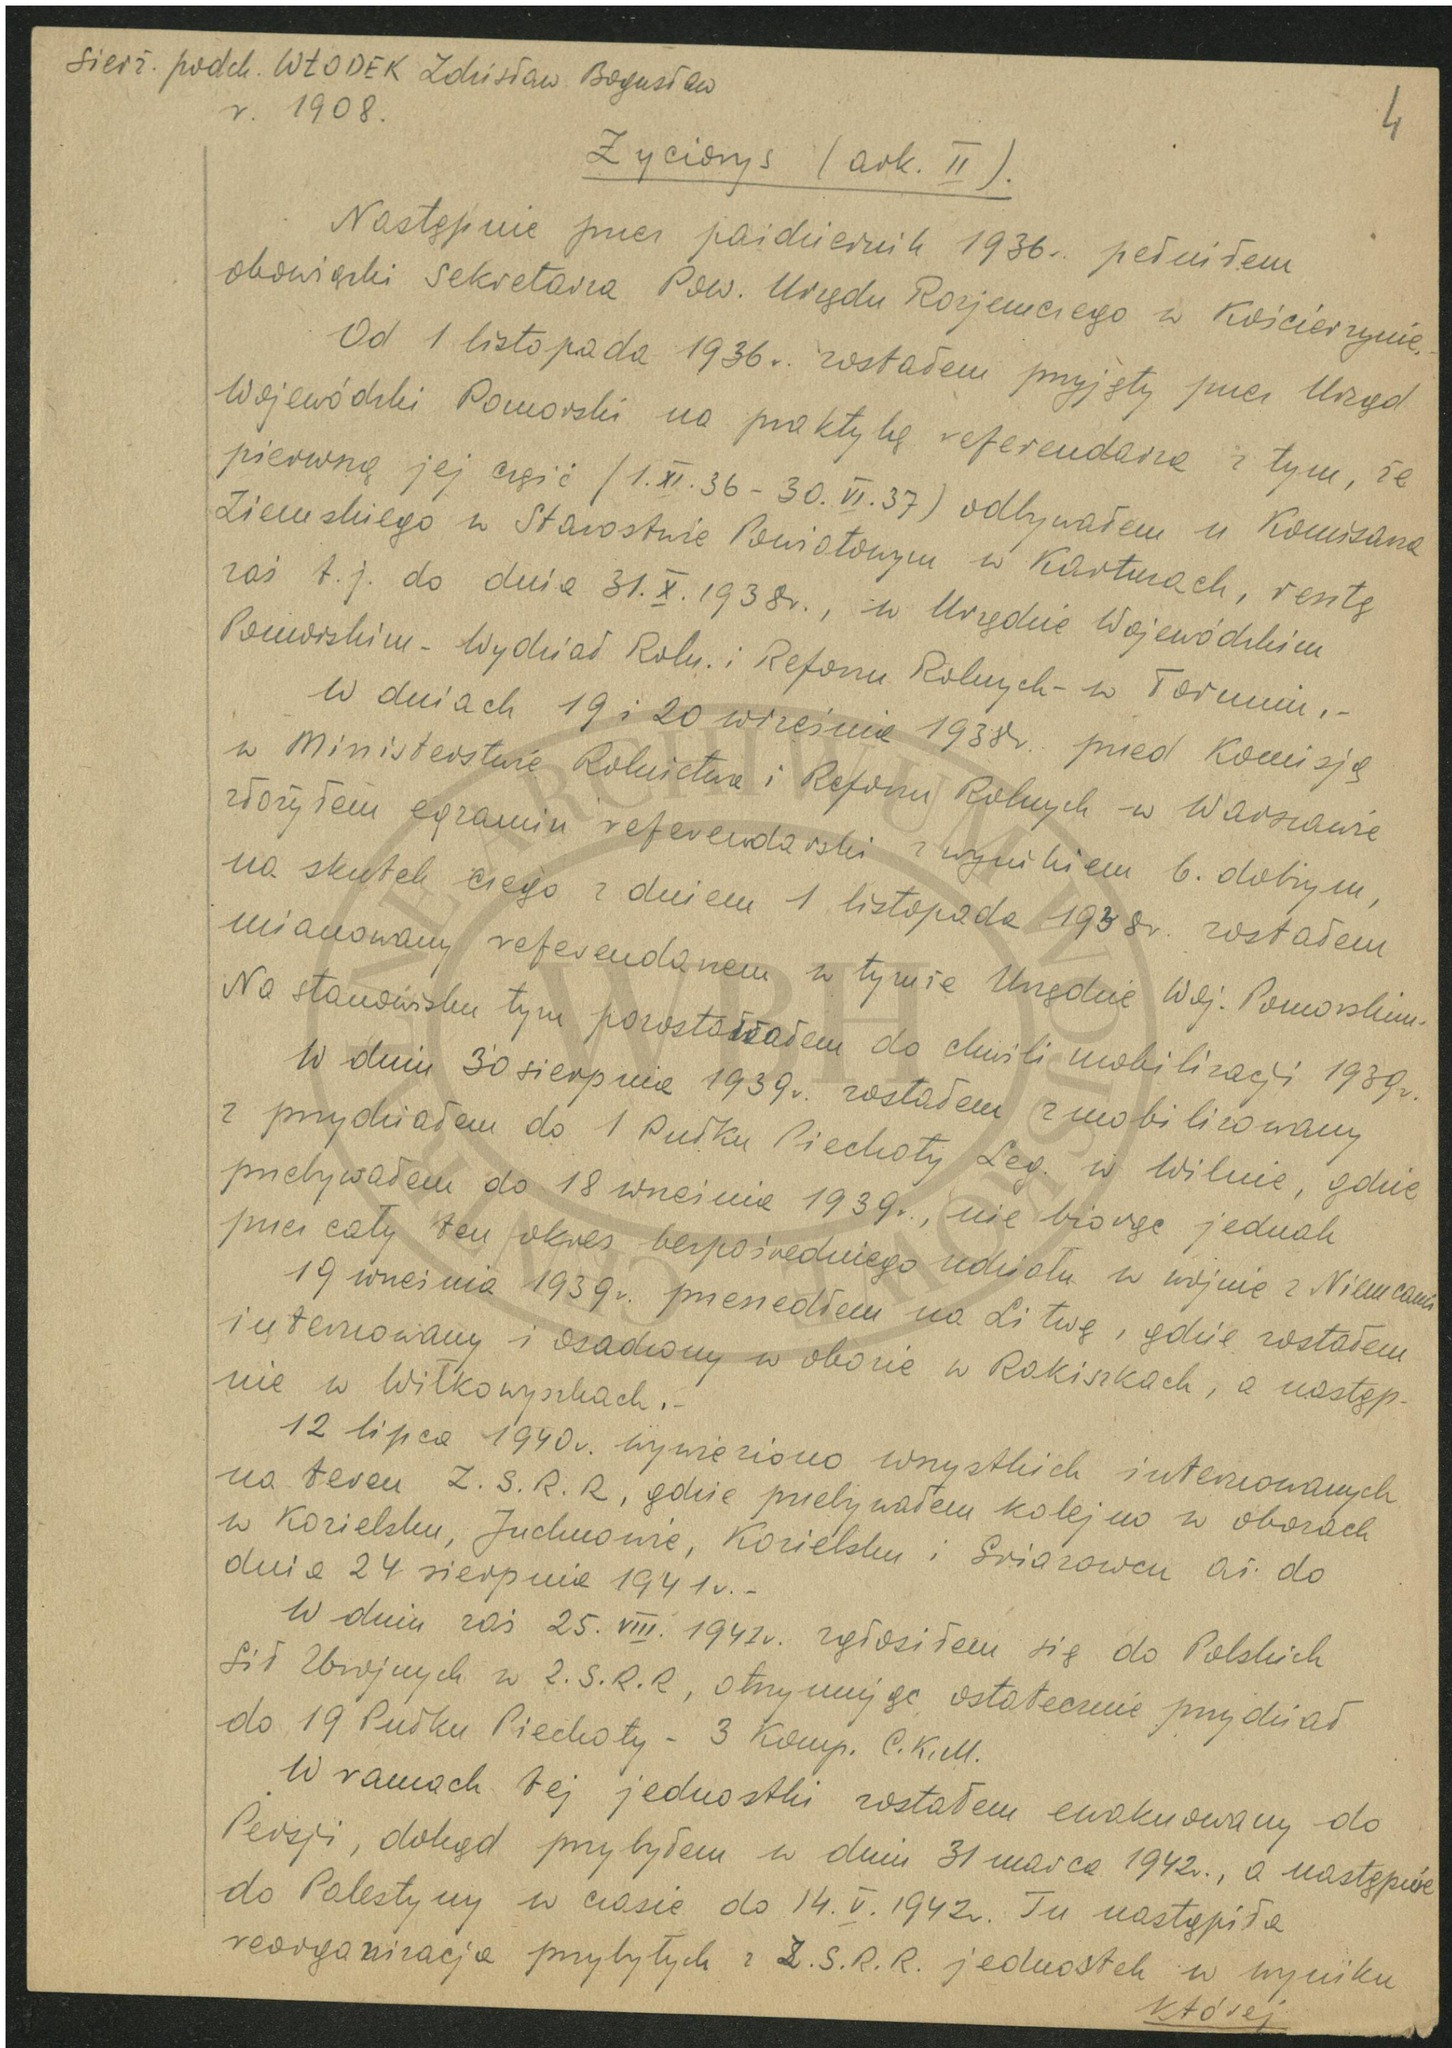 sierż. podch. WŁODEK Zdzisław Bogusław
r. 1908.
4
Życiorys (ark. II).
Następnie przez październik 1936r. pełniłem
obowiązki sekretarza Pow. Urzędu Rozjemczego w Kościerzynie.-
Od 1 listopada 1936r. zostałem przyjęty przez Urząd
Wojewódzki Pomorski na praktykę referendarza z tym, że
pierwszą jej część (1.XI.36 - 30.VI.37) odbywałem u Komisarza
Ziemskiego w Starostwie Powiatowym w Kartuzach, resztę
zaś t.j. do dnia 31.X.1938r., w Urzędzie Wojewódzkim
Pomorskim - Wydział Roln. i Reform Rolnych - w Toruniu.-
W dniach 19 i 20 września 1938r. przed Komisją
w Ministerstwie Rolnictwa i Reform Rolnych w Warszawie
złożyłem egzamin referendarski z wynikiem b. dobrym,
na skutek czego z dniem 1 listopada 1938r. zostałem
mianowany referendarzem w tymże Urzędzie Woj. Pomorskim.
Na stanowisku tym pozostawałem do chwili mobilizacji 1939r.
W dniu 30 sierpnia 1939r. zostałem zmobilizowany
z przydziałem do 1 Pułku Piechoty Leg. w Wilnie, gdzie
przebywałem do 18 września 1939r., nie biorąc jednak
przez cały ten okres bezpośredniego udziału w wojnie z Niemcami
19 września 1939r. przeszedłem na Litwę, gdzie zostałem
internowany i osadzony w obozie w Rakiszkach, a następ-
nie w Wiłkowyszkach.-
12 lipca 1940r. wywieziono wszystkich internowanych
na teren Z.S.R.R, gdzie przebywałem kolejno w obozach
w Kozielsku, Juchnowie, Kozielsku i Griazowcu aż do
dnia 24 sierpnia 1941r.-
W dniu zaś 25.VIII.1941r. zgłosiłem się do Polskich
Sił Zbrojnych w Z.S.R.R, otrzymując ostatecznie przydział
do 19 Pułku Piechoty - 3 Komp. C.K.M.
W ramach tej jednostki zostałem ewakuowany do
Persji, dokąd przybyłem w dniu 31 marca 1942r., a następnie
do Palestyny w czasie do 14.V.1942r. Tu nastąpiła
reorganizacja przybyłych z Z.S.R.R. jednostek w wyniku
której
CENTRALNE ARCHIWUM WOJSKOWE
WBH